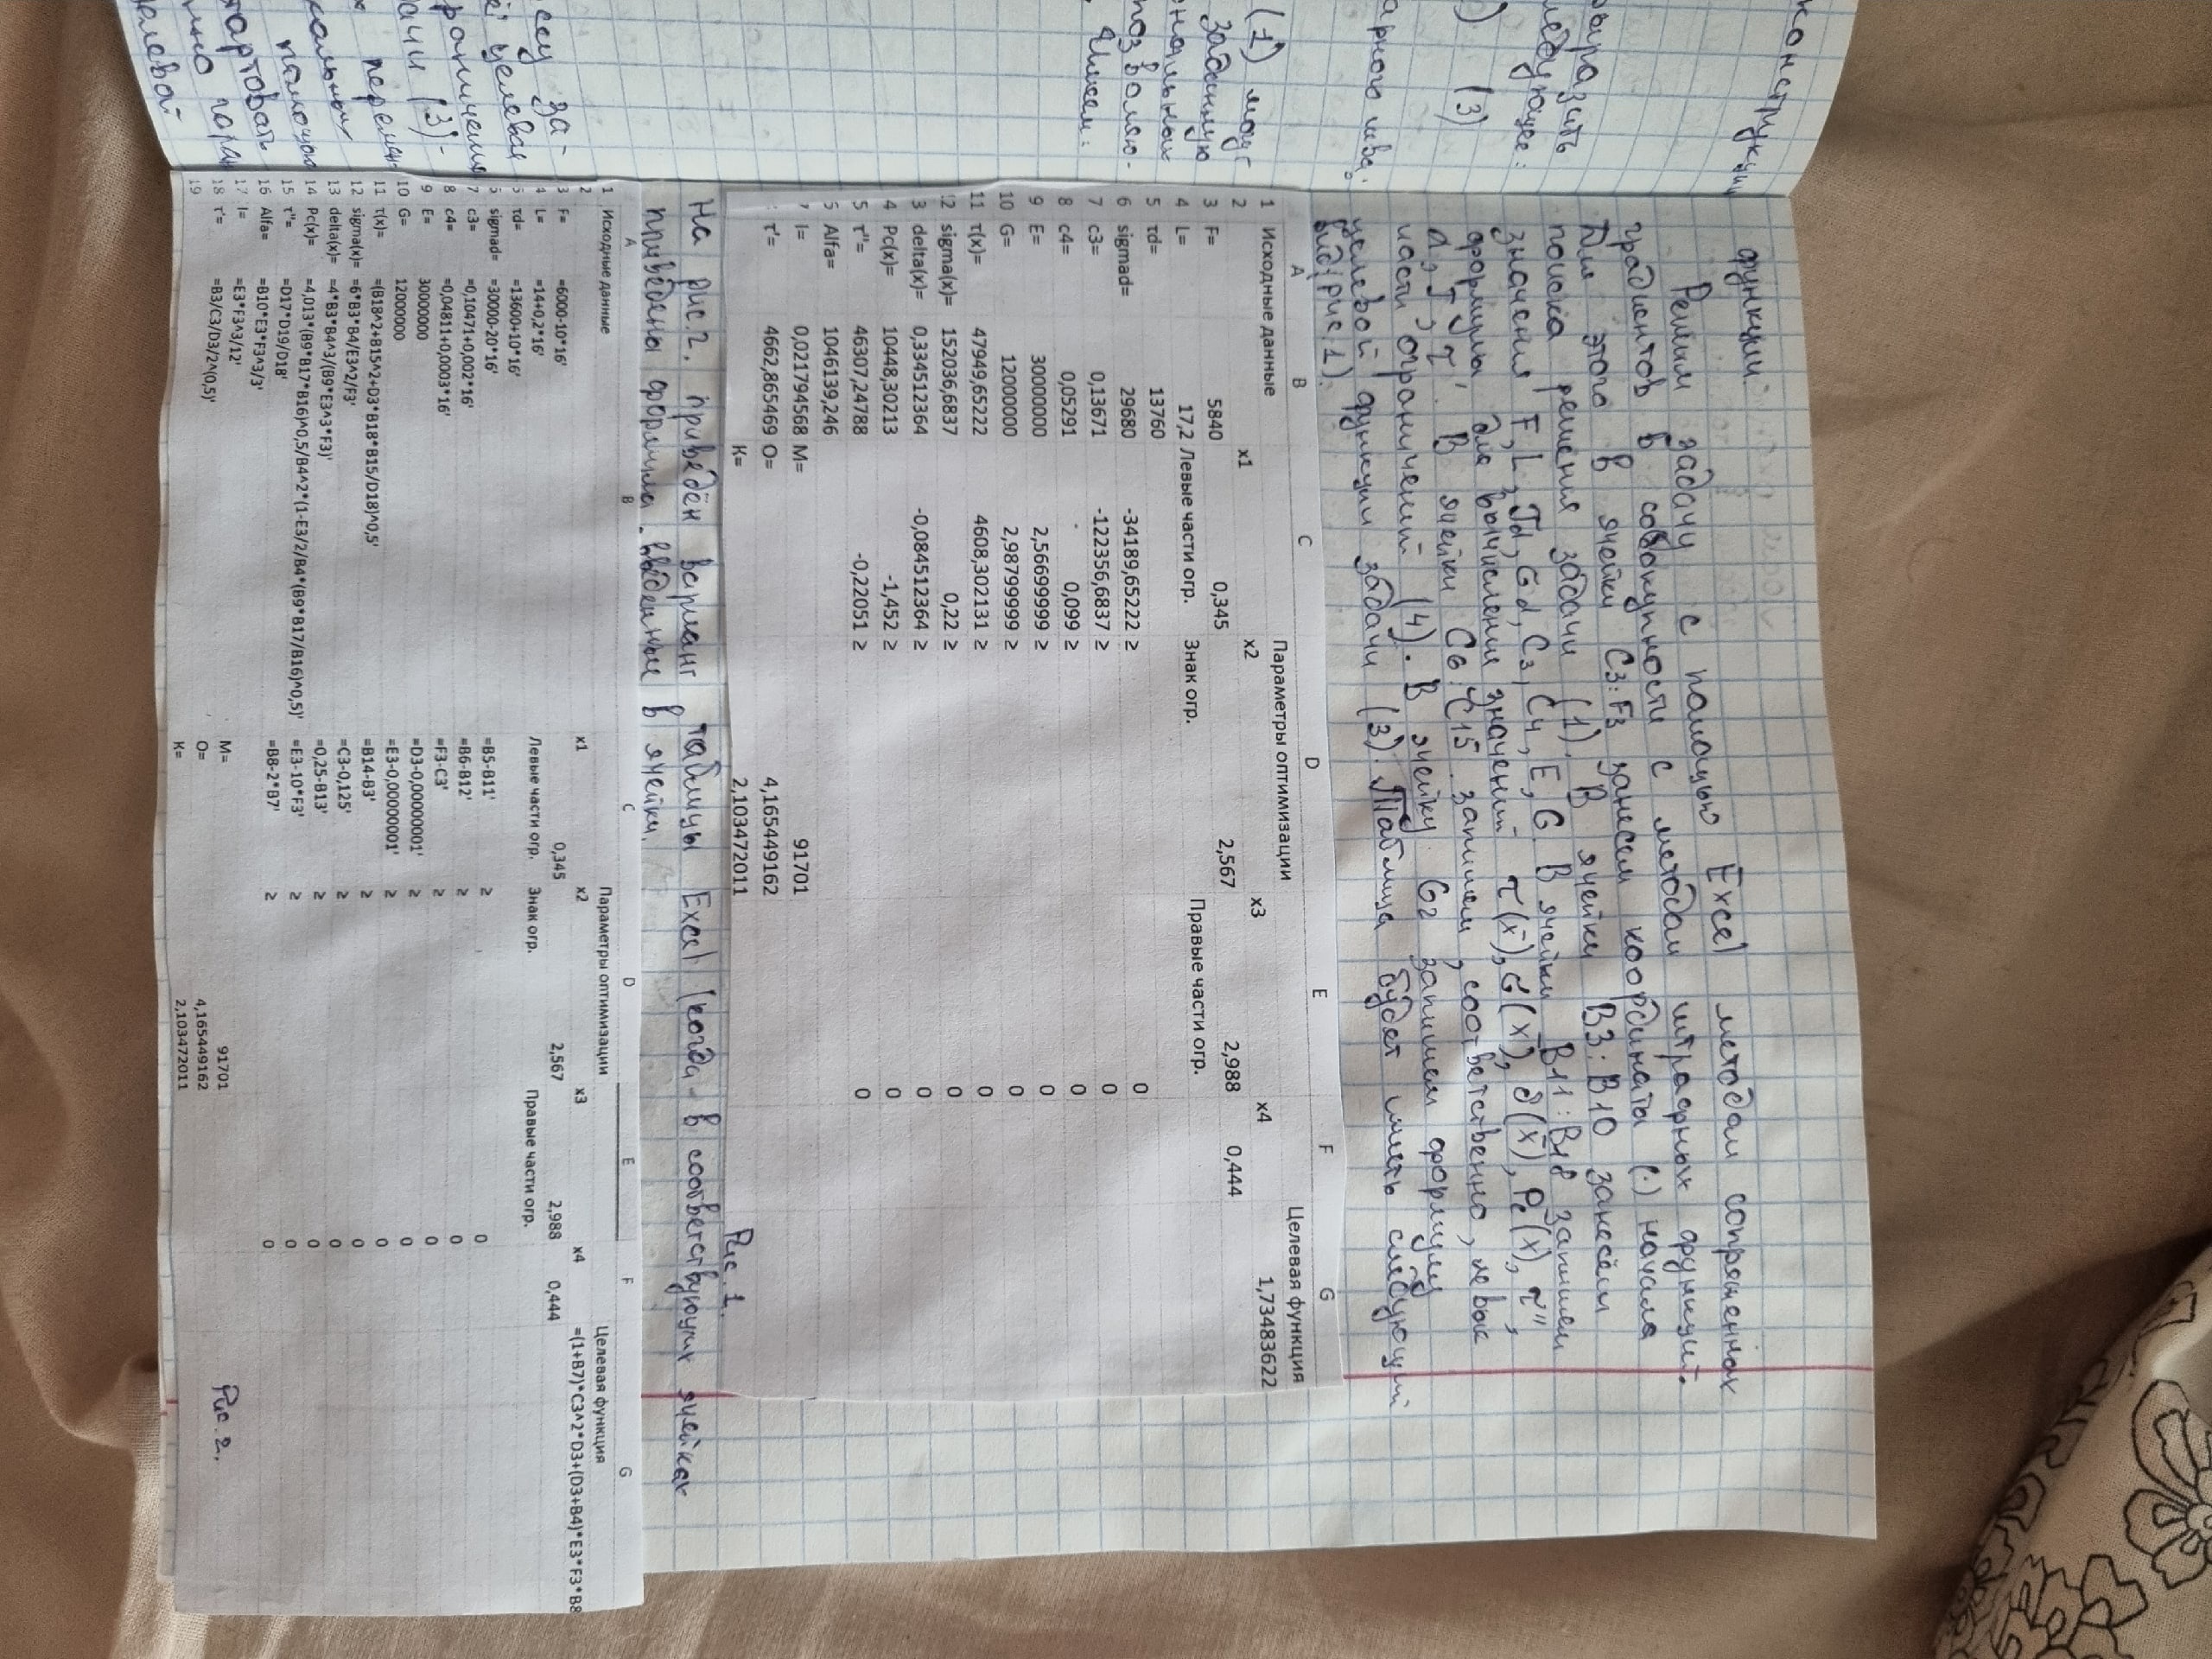 конструкции
выразить
следующее:
(3)
(1) могут
заданную
позволяю-
Имеем:
ссу за-
целевая
ограничения
задачи (3)
стартовать
целевой
функции.
Решим задачу с помощью Excel методом сопряженных
градиентов в совокупности с методом штрафных функций.
Для этого в ячейки C3:F3 занесем координаты (·) начала
поиска решения задачи (1). В ячейки B3:B10 занесём
значения F, L, τd, Gd, C3, C4, E, G. В ячейки B11:B18 запишем
формулы для вычисления значений τ(x̄), σ(x̄), δ(x̄), Pc(x̄), τ'',
α, J, τ'. В ячейки C6:C15 запишем, соответственно, левые
части ограничений (4). В ячейку G2 запишем формулу
целевой функции задачи (3). Таблица будет иметь следующий
вид: (рис.1).
A B C D E F G
1 Исходные данные Параметры оптимизации Целевая функция
2 x1 x2 x3 x4 1,73483622
3 F= 5840 0,345 2,567 2,988 0,444
4 L= 17,2 Левые части огр. Знак огр. Правые части огр.
5 τd= 13760
6 sigmad= 29680 -34189,65222 ≥ 0
7 c3= 0,13671 -122356,6837 ≥ 0
8 c4= 0,05291 0,099 ≥ 0
9 E= 30000000 2,56699999 ≥ 0
10 G= 12000000 2,98799999 ≥ 0
11 τ(x)= 47949,65222 4608,302131 ≥ 0
12 sigma(x)= 152036,6837 0,22 ≥ 0
3 delta(x)= 0,334512364 -0,084512364 ≥ 0
4 Pc(x)= 10448,30213 -1,452 ≥ 0
5 τ''= 46307,24788 -0,22051 ≥ 0
Alfa= 1046139,246
7 I= 0,021794568 M= 91701
τ'= 4662,865469 O= 4,165449162
K= 2,103472011
Рис. 1.
На рис.2. приведён вариант таблицы Excel (когда в соответствующих ячейках
приведены формулы, введенные в ячейки.
A B C D E F G
1 Исходные данные Параметры оптимизации Целевая функция
2 x1 x2 x3 x4 =(1+B7)*C3^2*D3+(D3+B4)*E3*F3*B8
3 F= =6000-10*16' 0,345 2,567 2,988 0,444
4 L= =14+0,2*16' Левые части огр. Знак огр. Правые части огр.
5 τd= =13600+10*16'
6 sigmad= =30000-20*16' =B5-B11' ≥ 0
7 c3= =0,10471+0,002*16' =B6-B12' ≥ 0
8 c4= =0,04811+0,0003*16' =F3-C3' ≥ 0
9 E= 30000000 =D3-0,00000001' ≥ 0
10 G= 12000000 =E3-0,00000001' ≥ 0
11 τ(x)= =(B18^2+B15^2+D3*B18*B15/D18)^0,5' =B14-B3' ≥ 0
12 sigma(x)= =6*B3*B4/E3^2/F3' =C3-0,125' ≥ 0
13 delta(x)= =4*B3*B4^3/(B9*E3^3*F3)' =0,25-B13' ≥ 0
14 Pc(x)= =4,013*(B9*B17*B16)^0,5/B4^2*(1-E3/2/B4*(B9*B17/B16)^0,5)' =E3-10*F3' ≥ 0
15 τ''= =D17*D19/D18' =B8-2*B7' ≥ 0
16 Alfa= =B10*E3*F3^3/3'
17 I= =E3*F3^3/12' M= 91701
18 τ'= =B3/C3/D3/2^(0,5)' O= 4,165449162
19 K= 2,103472011
Рис. 2.